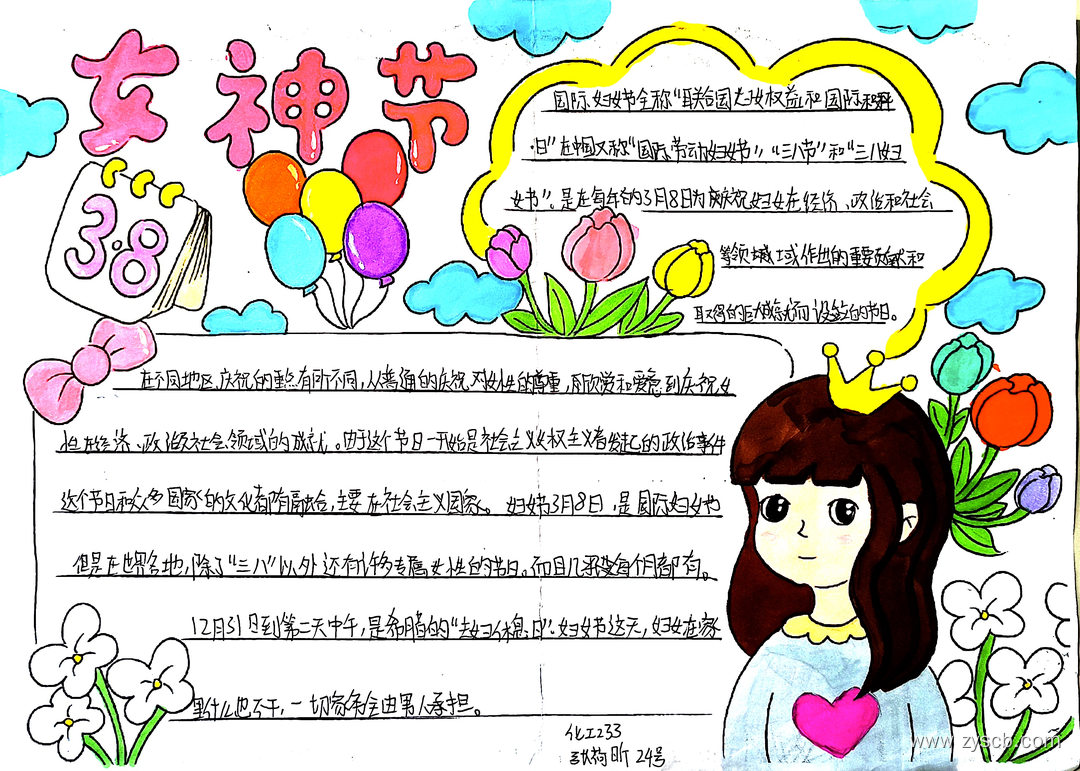 女神节
3.8
国际妇女节全称"联合国妇女权益和国际和平
日"在中国又称"国际劳动妇女节""三八节"和"三八妇
女节"。是在每年的3月8日为庆祝妇女在经济、政治和社会
等领域作出的重要贡献和
取得的巨大成就而设立的节日。
在不同地区,庆祝的重点有所不同,从普通的庆祝对女性的尊重,欣赏和爱意到庆祝女
性在经济、政治及社会领域的成就。由于这个节日一开始是社会主义女权主义者发起的政治事件
这个节日和众多国家的文化都有融合,主要在社会主义国家。妇女节3月8日,是国际妇女
但是在世界各地,除了"三八"以外还有许多专属女性的节日。而且几乎每个月都有。
12月31日到第二天中午,是希腊的"妇女休息日"。妇女节这天,妇女在家
里什么也不干,一切家务全由男人承担。
化工233
昕 24号
www.zyscb.com